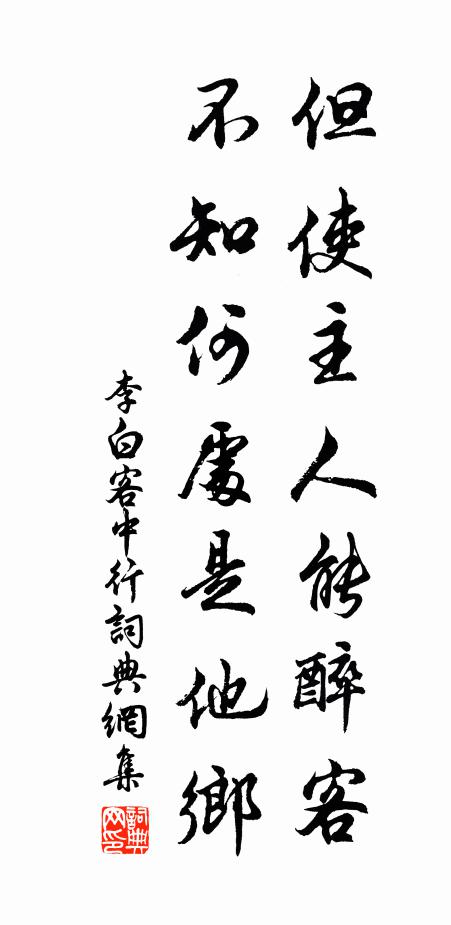 但使主人能醉客
不知何處是他鄉
李白客中行詞典網集
詞典網印